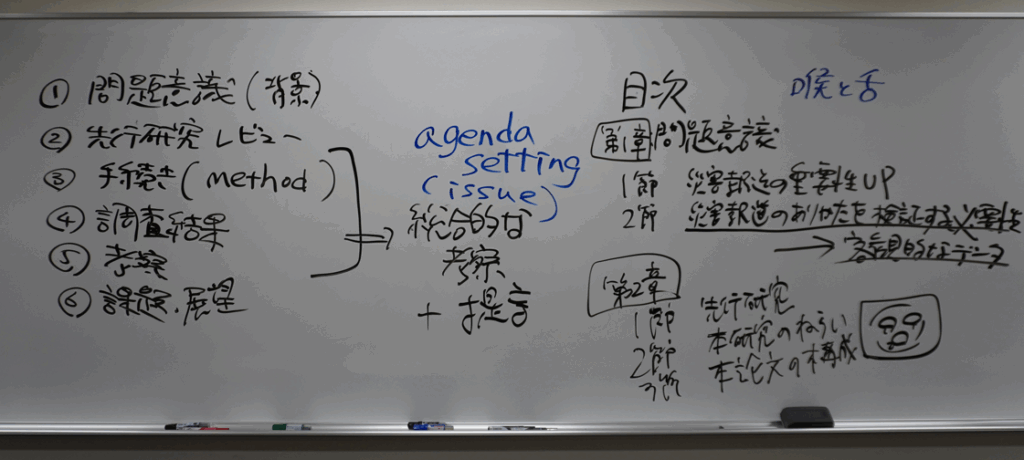 ① 問題意識(背景)
② 先行研究レビュー
③ 手続き(method)
④ 調査結果
⑤ 考察
⑥ 課題、展望
agenda
setting
(issue)
総合的な
考察
+ 提言
目次
喉と舌
第1章 問題意識
1節 災害報道の重要性UP
2節 災害報道のありかたを検証する必要性
→ 客観的なデータ
第2章
1節 先行研究
2節 本研究のねらい
3節 本論文の構成